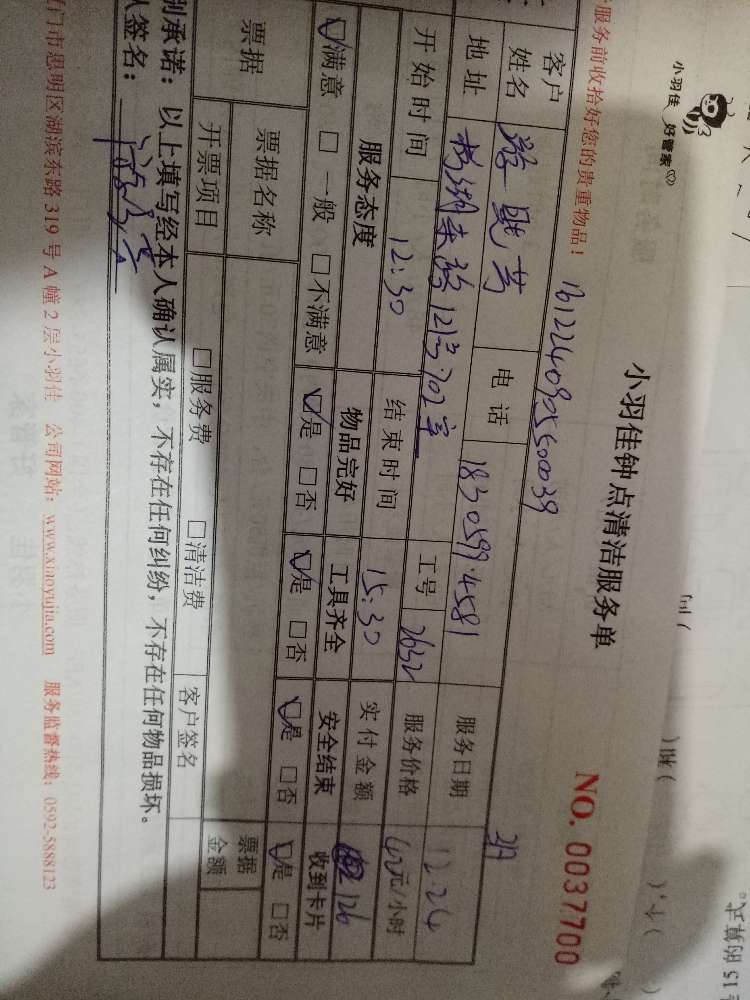 小羽佳 好管家
小羽佳钟点清洁服务单
NO. 0037700
服务前收拾好您的贵重物品！
1612240905500039
客户姓名 电话 18305994581 服务日期 12.24
地址 121号702室 工号 2632 服务价格 42元/小时
开始时间 12:30 结束时间 15:30 实付金额 126
服务态度 物品完好 工具齐全 安全结束 收到卡片
☑满意 □一般 □不满意 ☑是 □否 ☑是 □否 ☑是 □否 ☑是 □否
票据 票据名称 □服务费 □清洁费 票据金额
开票项目 客户签名
别承诺：以上填写经本人确认属实，不存在任何纠纷，不存在任何物品损坏。
人签名：
门市思明区湖滨东路319号A幢2层小羽佳 公司网站：www.xiaoyujia.com 服务监督热线：0592-5888123
15的算式。